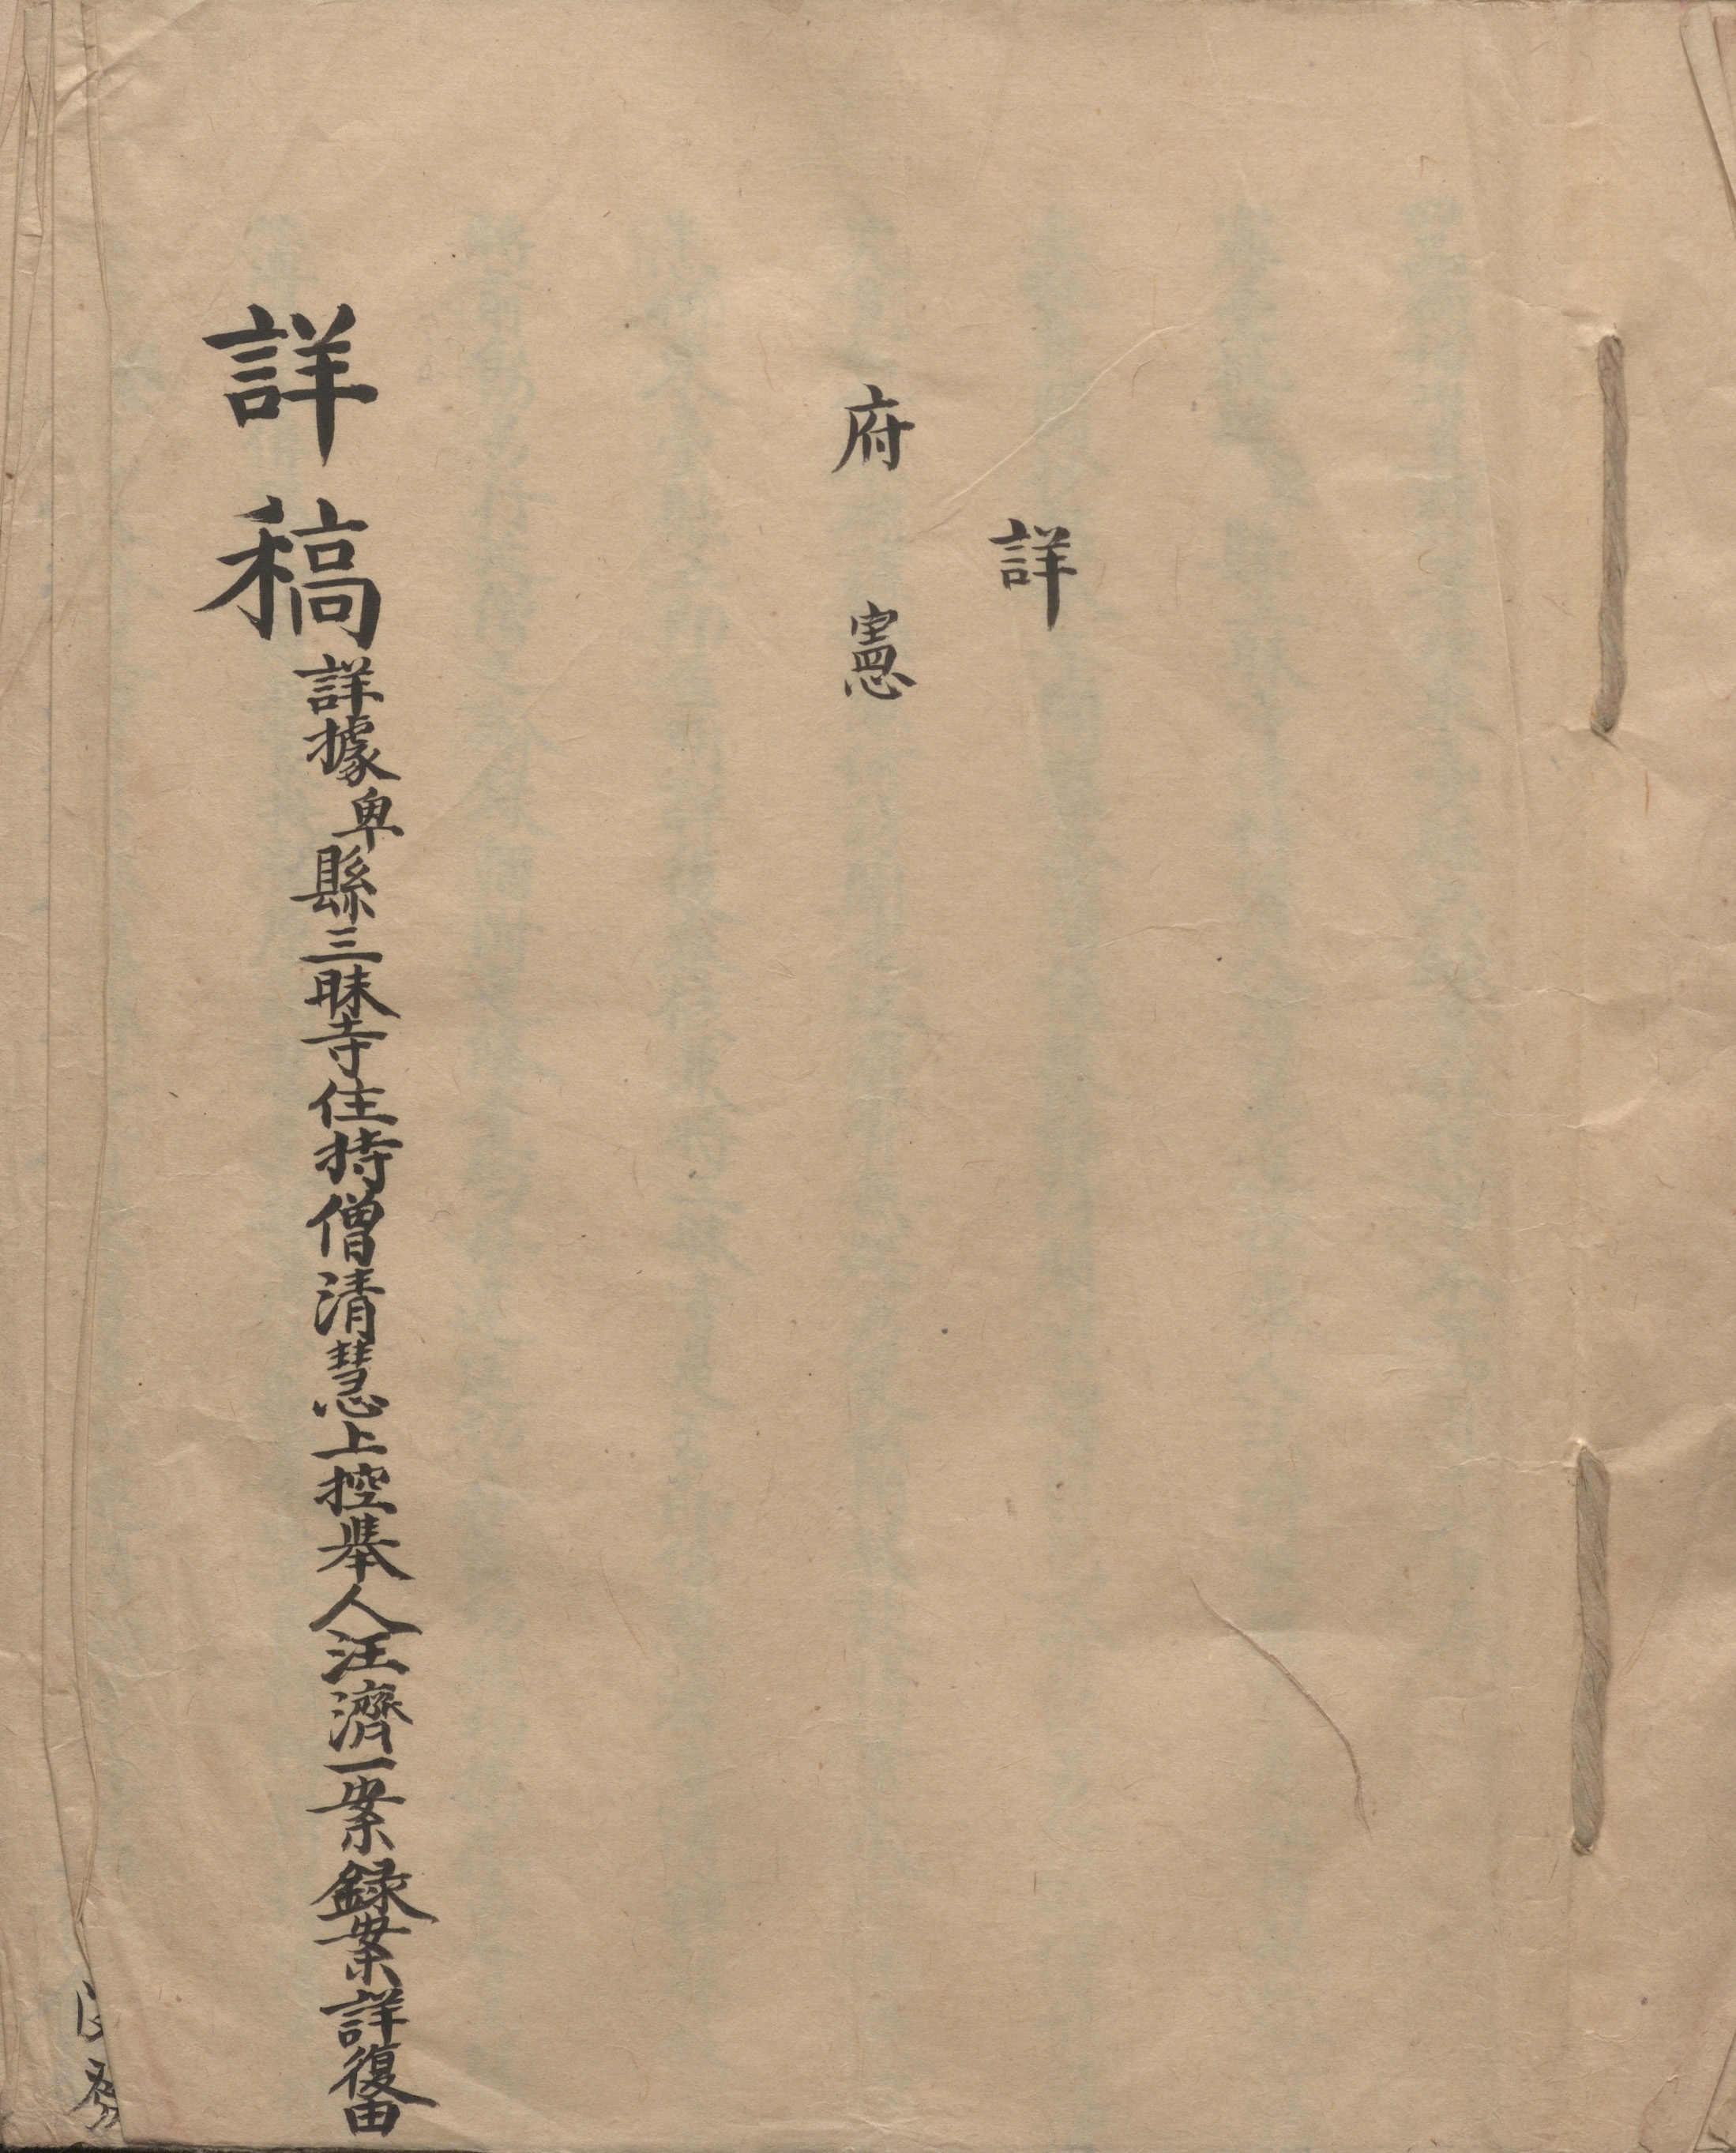 詳
府憲
詳稿詳據卑縣三昧寺住持僧清慧上控舉人汪濟一案録案詳復由